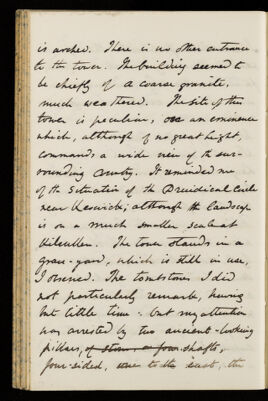 is arched. There is no other entrance
to the tower. The building seemed to
be chiefly of a coarse granite,
much weathered. The site of this
tower is peculiar, on an eminence
which, although of no great height,
commands a wide view of the sur-
rounding country. It reminded me
of the situation of the Druidical Circle
near Keswick; although the landscape
is on a much smaller scale at
Kilcullen. The tower stands in a
grave-yard, which is still in use,
I observed. The tombstones I did
not particularly remark, having
but little time: but my attention
was arrested by two ancient-looking
pillars, of stone or four shafts,
four-sided, to the east, the